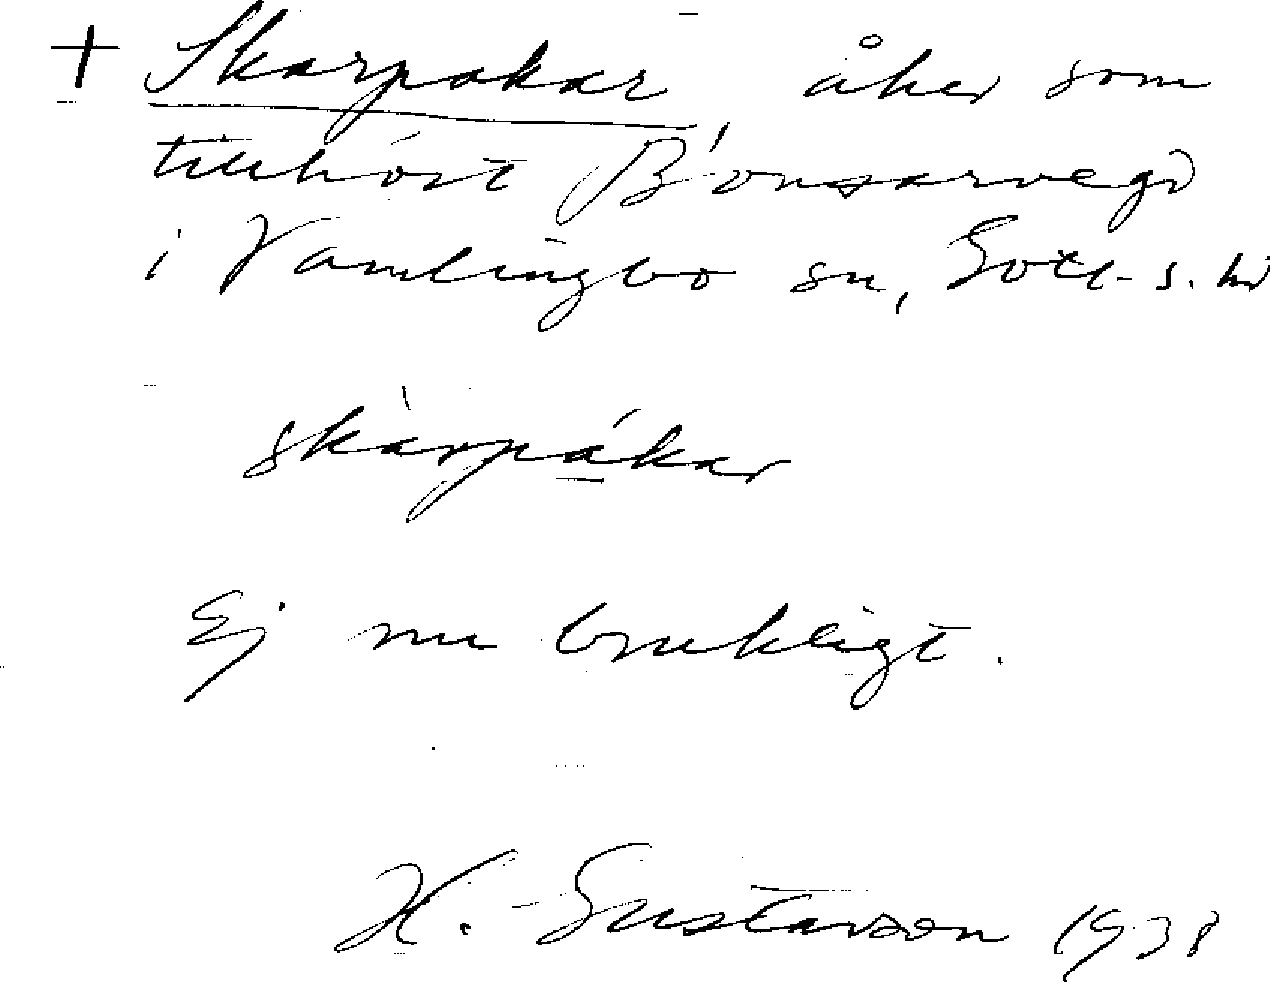 + Skarpakar, åker som
tillhört Bonsarvegd
i Vamlingbo sn, Gotl. s. hd
skàrpákar
Ej nu brukligt.
H. Gustavson 1938